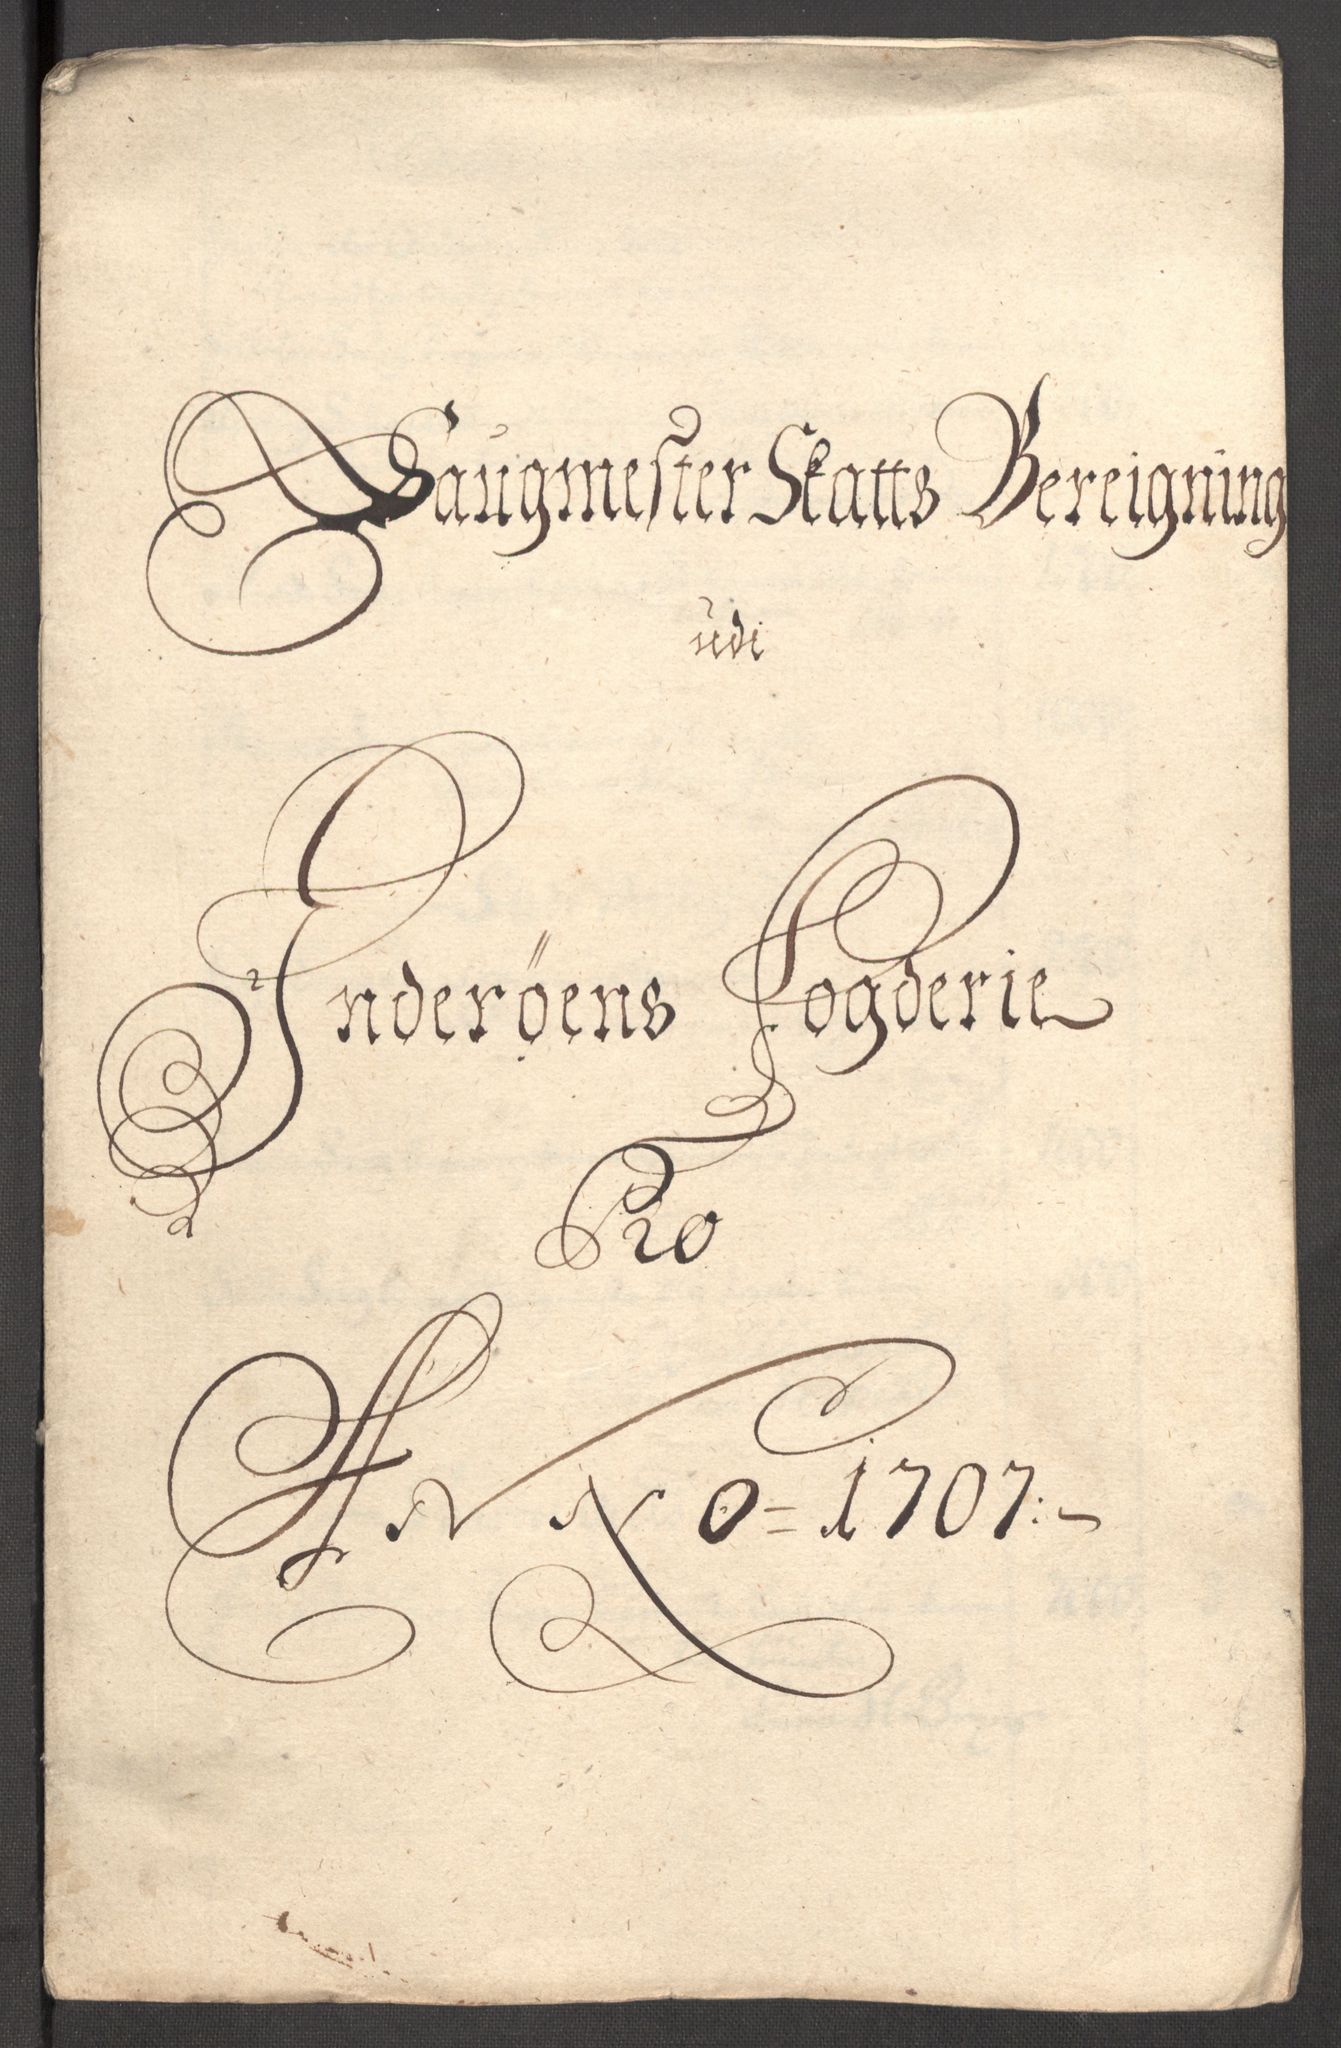 Saugmester Skatts Bereigning
udi
Inderøens Fogderie
Pro
ANNO = 1707:-